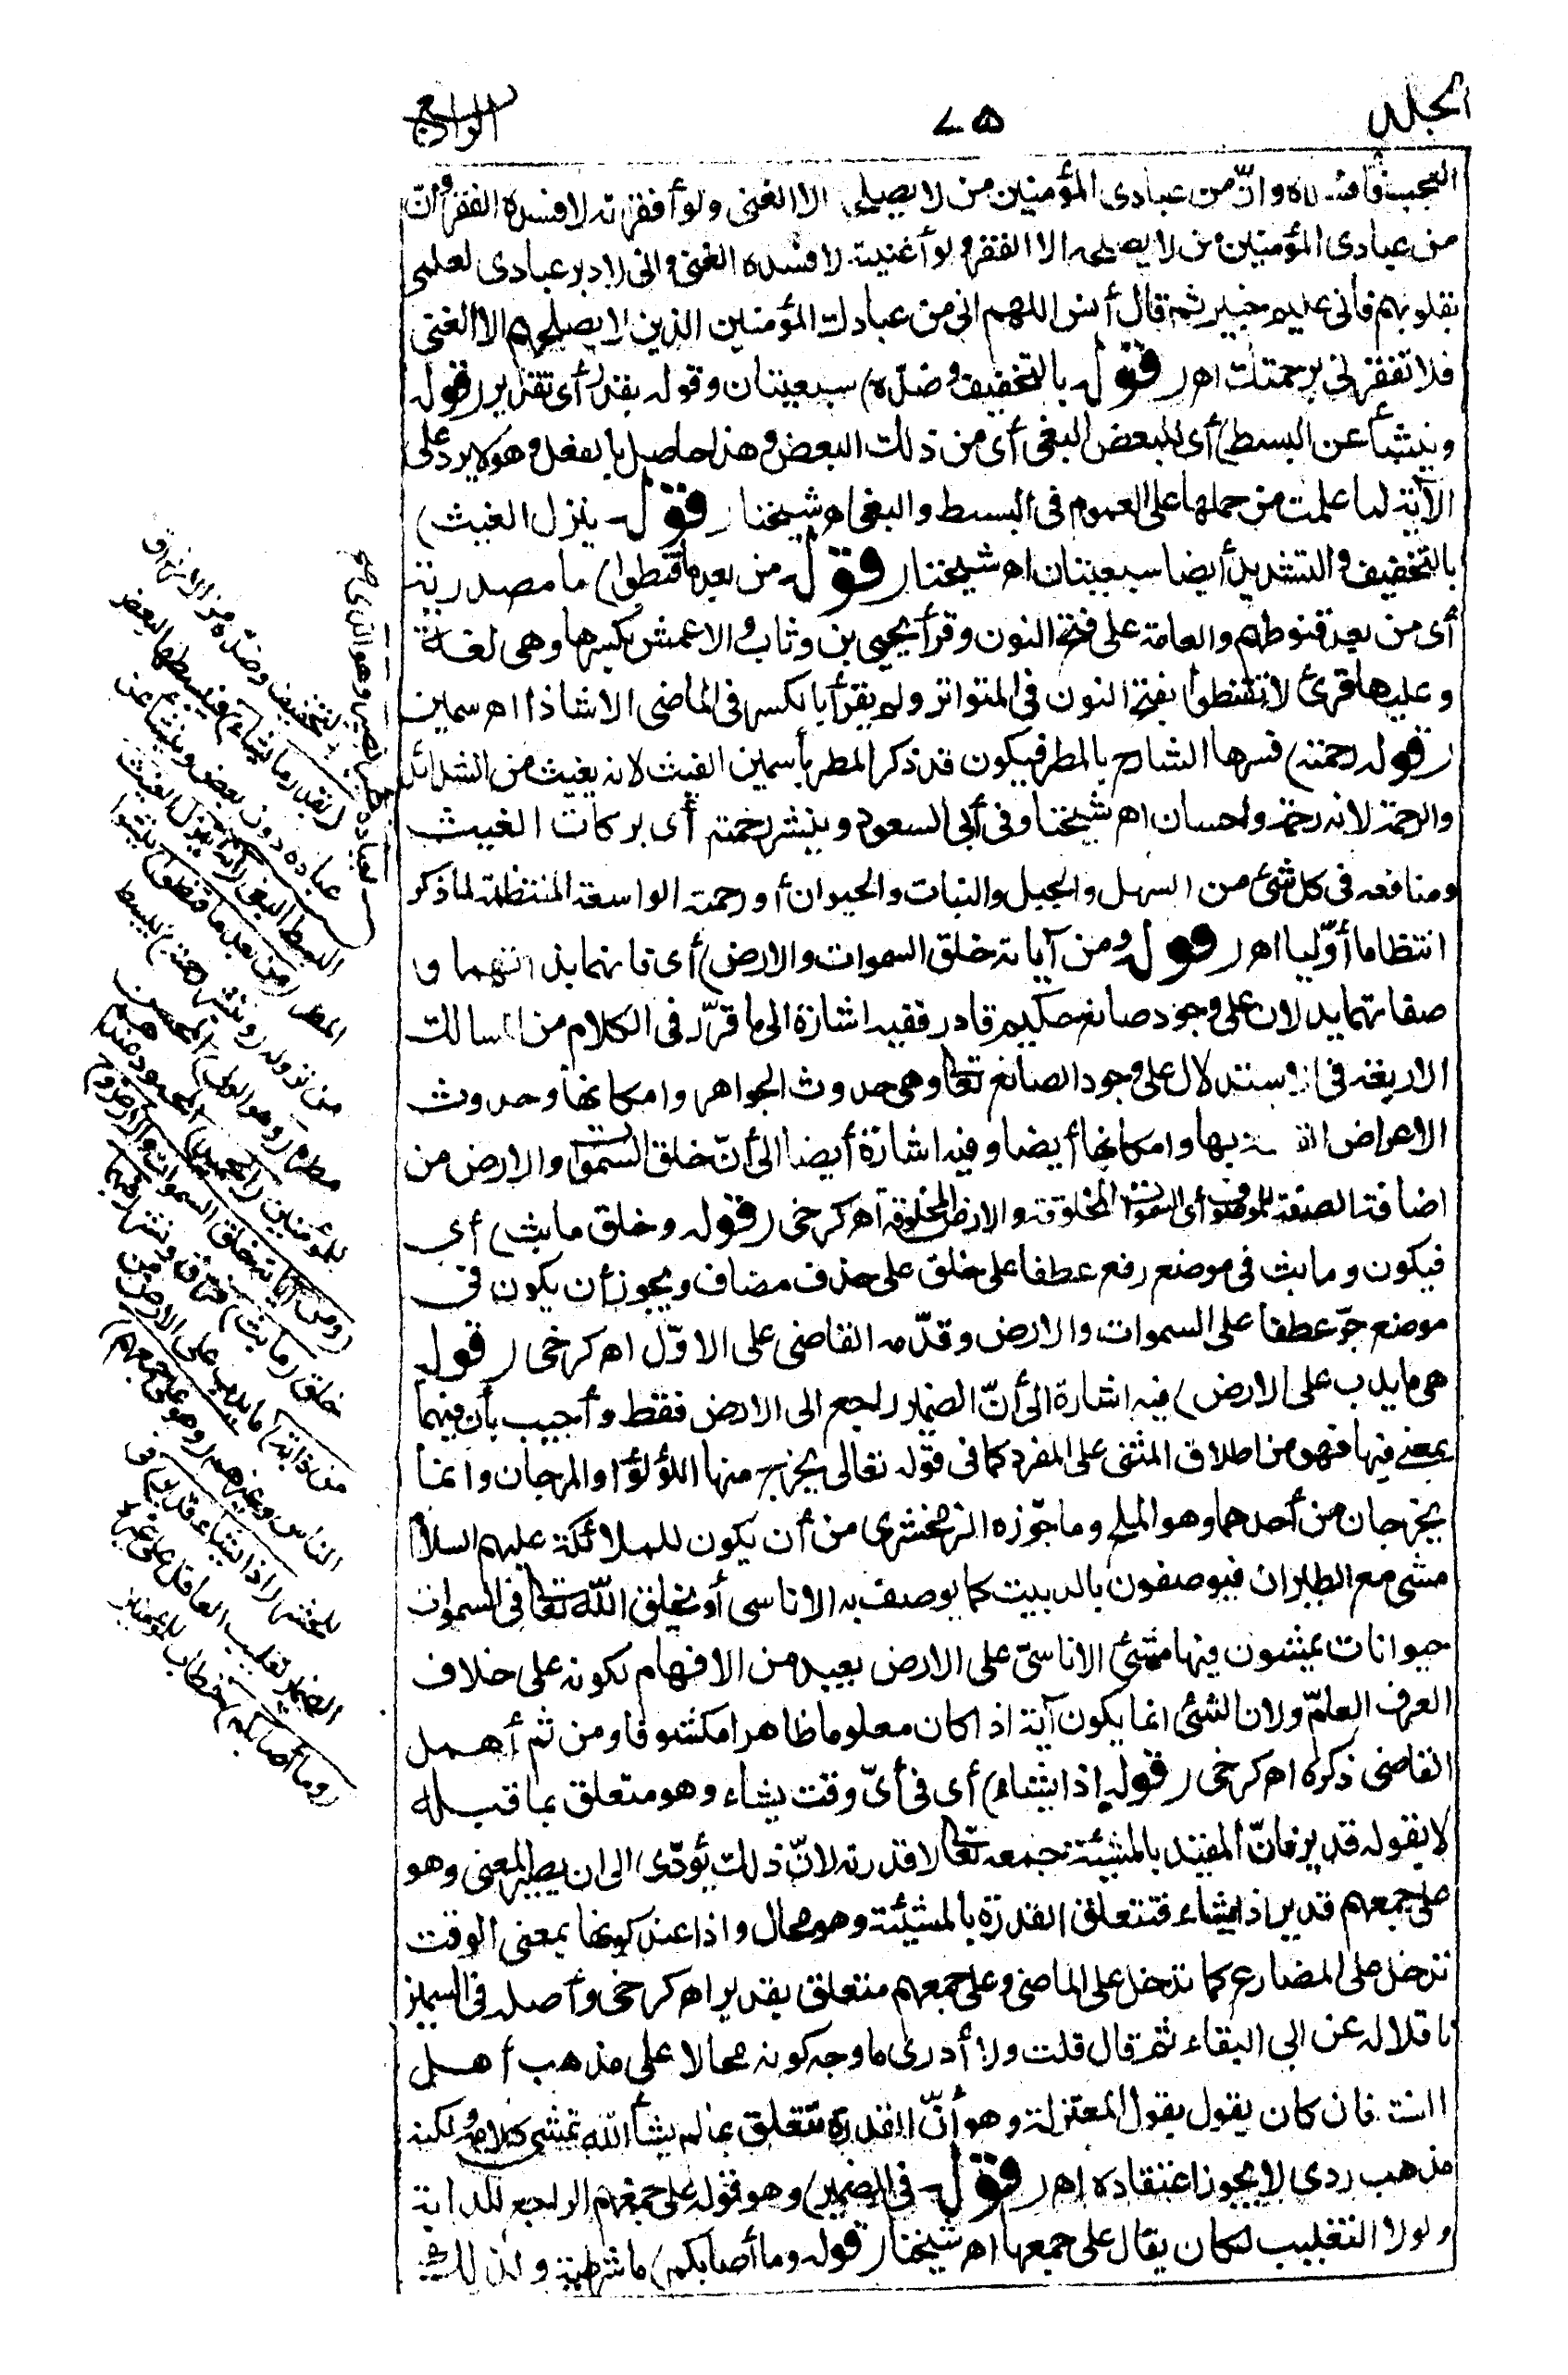 المجلد
٧٥
الرابع
العجب فأفسده وانّ من عبادى المؤمنين من لا يصلحه الا الغنى ولو أفقرته لافسده الفقر وأنّ
من عبادى المؤمنين من لا يصلحه الا الفقر ولو أغنيته لافسده الغنى وانى لادبر عبادى لعلمى
بقلوبهم فانى عليم خبير ثم قال أنس اللهم انى من عبادك المؤمنين الذين لا يصلحهم الا الغنى
فلا تفقرنى برحمتك اھ (قوله بالتخفيف وضدّه) سبعيتان وقوله بقدر أى تقدير (قوله
وينشأ عن البسط) أى للبعض البغى أى من ذلك البعض وهذا حاصل بالفعل وهو لا يرد على
الآية لما علمت من حملها على العموم فى البسط والبغى اھ شيخنا (قوله ينزل الغيث)
بالتخفيف والتشديد أيضا سبعيتان اھ شيخنا (قوله من بعد ما قنطوا) ما مصدرية
أى من بعد قنوطهم والعامة على فتح النون وقرأ يحيى بن وثاب والاعمش بكسرها وهى لغة
وعليها قرئ لا تقنطوا بفتح النون فى المتواتر ولم يقرأ بالكسر فى الماضى الا شاذا اھ سمين
(قوله رحمته) فسرها الشارح بالمطر فيكون قد ذكر المطر بأسمين الغيث لانه يغيث من الشدائد
والرحمة لانه رحمة واحسان اھ شيخنا وفى أبى السعود وينشر رحمته أى بركات الغيث
ومنافعه فى كل شئ من السهل والجبل والنبات والحيوان أو رحمته الواسعة المنتظمة لما ذكر
انتظاما أوّليا اھ (قوله ومن آياته خلق السموات والارض) أى فانهما بذاتهما و
صفاتهما يدلان على وجود صانع حكيم قادر ففيه اشارة الى ما قرّر فى الكلام من المسالك
الاربعة فى الاستدلال على وجود الصانع تعالى وهى حدوث الجواهر وامكانها وحدوث
الاعراض القائمة بها وامكانها أيضا وفيه اشارة أيضا الى أنّ خلق السموات والارض من
اضافة الصفة للموصوف أى السموات المخلوقة والارض المخلوقة اھ كرخى (قوله وخلق ما بث) أى
فيكون وما بث فى موضع رفع عطفا على خلق على حذف مضاف ويجوز أن يكون فى
موضع جرّ عطفا على السموات والارض وقدّمه القاضى على الاوّل اھ كرخى (قوله
هى ما يدب على الارض) فيه اشارة الى أنّ الضمير راجع الى الارض فقط وأجيب بأن فيهما
بمعنى فيها فهو من اطلاق المثنى على المفرد كما فى قوله تعالى يخرج منها اللؤلؤ والمرجان وانما
يخرجان من أحدهما وهو الملح وما جوّزه الزمخشرى من أن يكون للملائكة عليهم السلام
مشى مع الطيران فيوصفون بالدبيب كما يوصف به الاناسى أو يخلق الله تعالى فى السموات
حيوانات يمشون فيها مشى الاناسىّ على الارض بعيد من الافهام لكونه على خلاف
العرف العامّ ولان الشئ انما يكون آية اذا كان معلوما ظاهرا مكشوفا ومن ثم أهمل
القاضى ذكره اھ كرخى (قوله اذا يشاء) أى فى أىّ وقت يشاء وهو متعلق بما قبله
لا بقوله قدير فانّ المقيد بالمشيئة جمعه تعالى لا قدرته لانّ ذلك يؤدّى الى ان يصير المعنى وهو
على جمعهم قدير اذا يشاء فتتعلق القدرة بالمشيئة وهو محال واذا عند كونها بمعنى الوقت
تدخل على المضارع كما تدخل على الماضى وعلى جمعهم متعلق بقدير اھ كرخى وأصله فى السمين
ناقلا له عن أبى البقاء ثم قال قلت ولا أدرى ما وجه كونه محالا على مذهب أهل
السنة فان كان يقول بقول المعتزلة وهو أنّ القدرة تتعلق بما لم يشأ الله تمشى كلامه ولكنه
مذهب ردى لا يجوز اعتقاده اھ (قوله فى الضمير) وهو قوله على جمعهم الراجع للدابة
ولولا التغليب لكان يقال على جمعها اھ شيخنا (قوله وما أصابكم) ما شرطية ولذلك
لعباده خبير بصير وهو الذى
بالتخفيف وضدّه من الارزاق
(بقدر ما يشاء) فيبسطها لبعض
عباده دون بعض وينشأ عن
البسط البغى (وهو الذى ينزل الغيث)
المطر (من بعد ما قنطوا) يئسوا
من نزوله (وينشر رحمته) يبسط
مطره (وهو الولى) المحسن
للمؤمنين (الحميد) المحمود عندهم
(ومن آياته خلق السموات والارض و)
خلق (ما بث) فرّق ونشر (فيهما
من دابة) ما يدب على الارض من
الناس وغيرهم (وهو على جمعهم)
للحشر (اذا يشاء قدير) فى
الضمير تغليب العاقل على غيره
(وما أصابكم) خطاب للمؤمنين